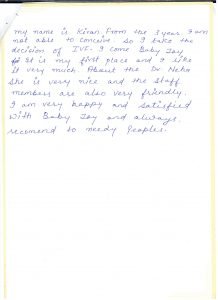 my name is Kiran. From the 3 year I am
not able to conceive so I take the
decision of IVF. I come Baby Joy
It is my first place and I like
it very much. About the Dr Neha
She is very nice and the staff
members are also very friendly.
I am very happy and satisfied
with Baby Joy and always
recomend to needy Peoples.